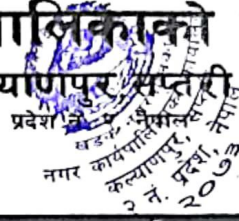 ालिकाको
याणपुर, सप्तरी
प्रदेश नं. २, नेपाल
नगर कार्यपालि
कल्याणपुर, सप्तरी
२ नं. प्रदेश, नेपाल
२०७३